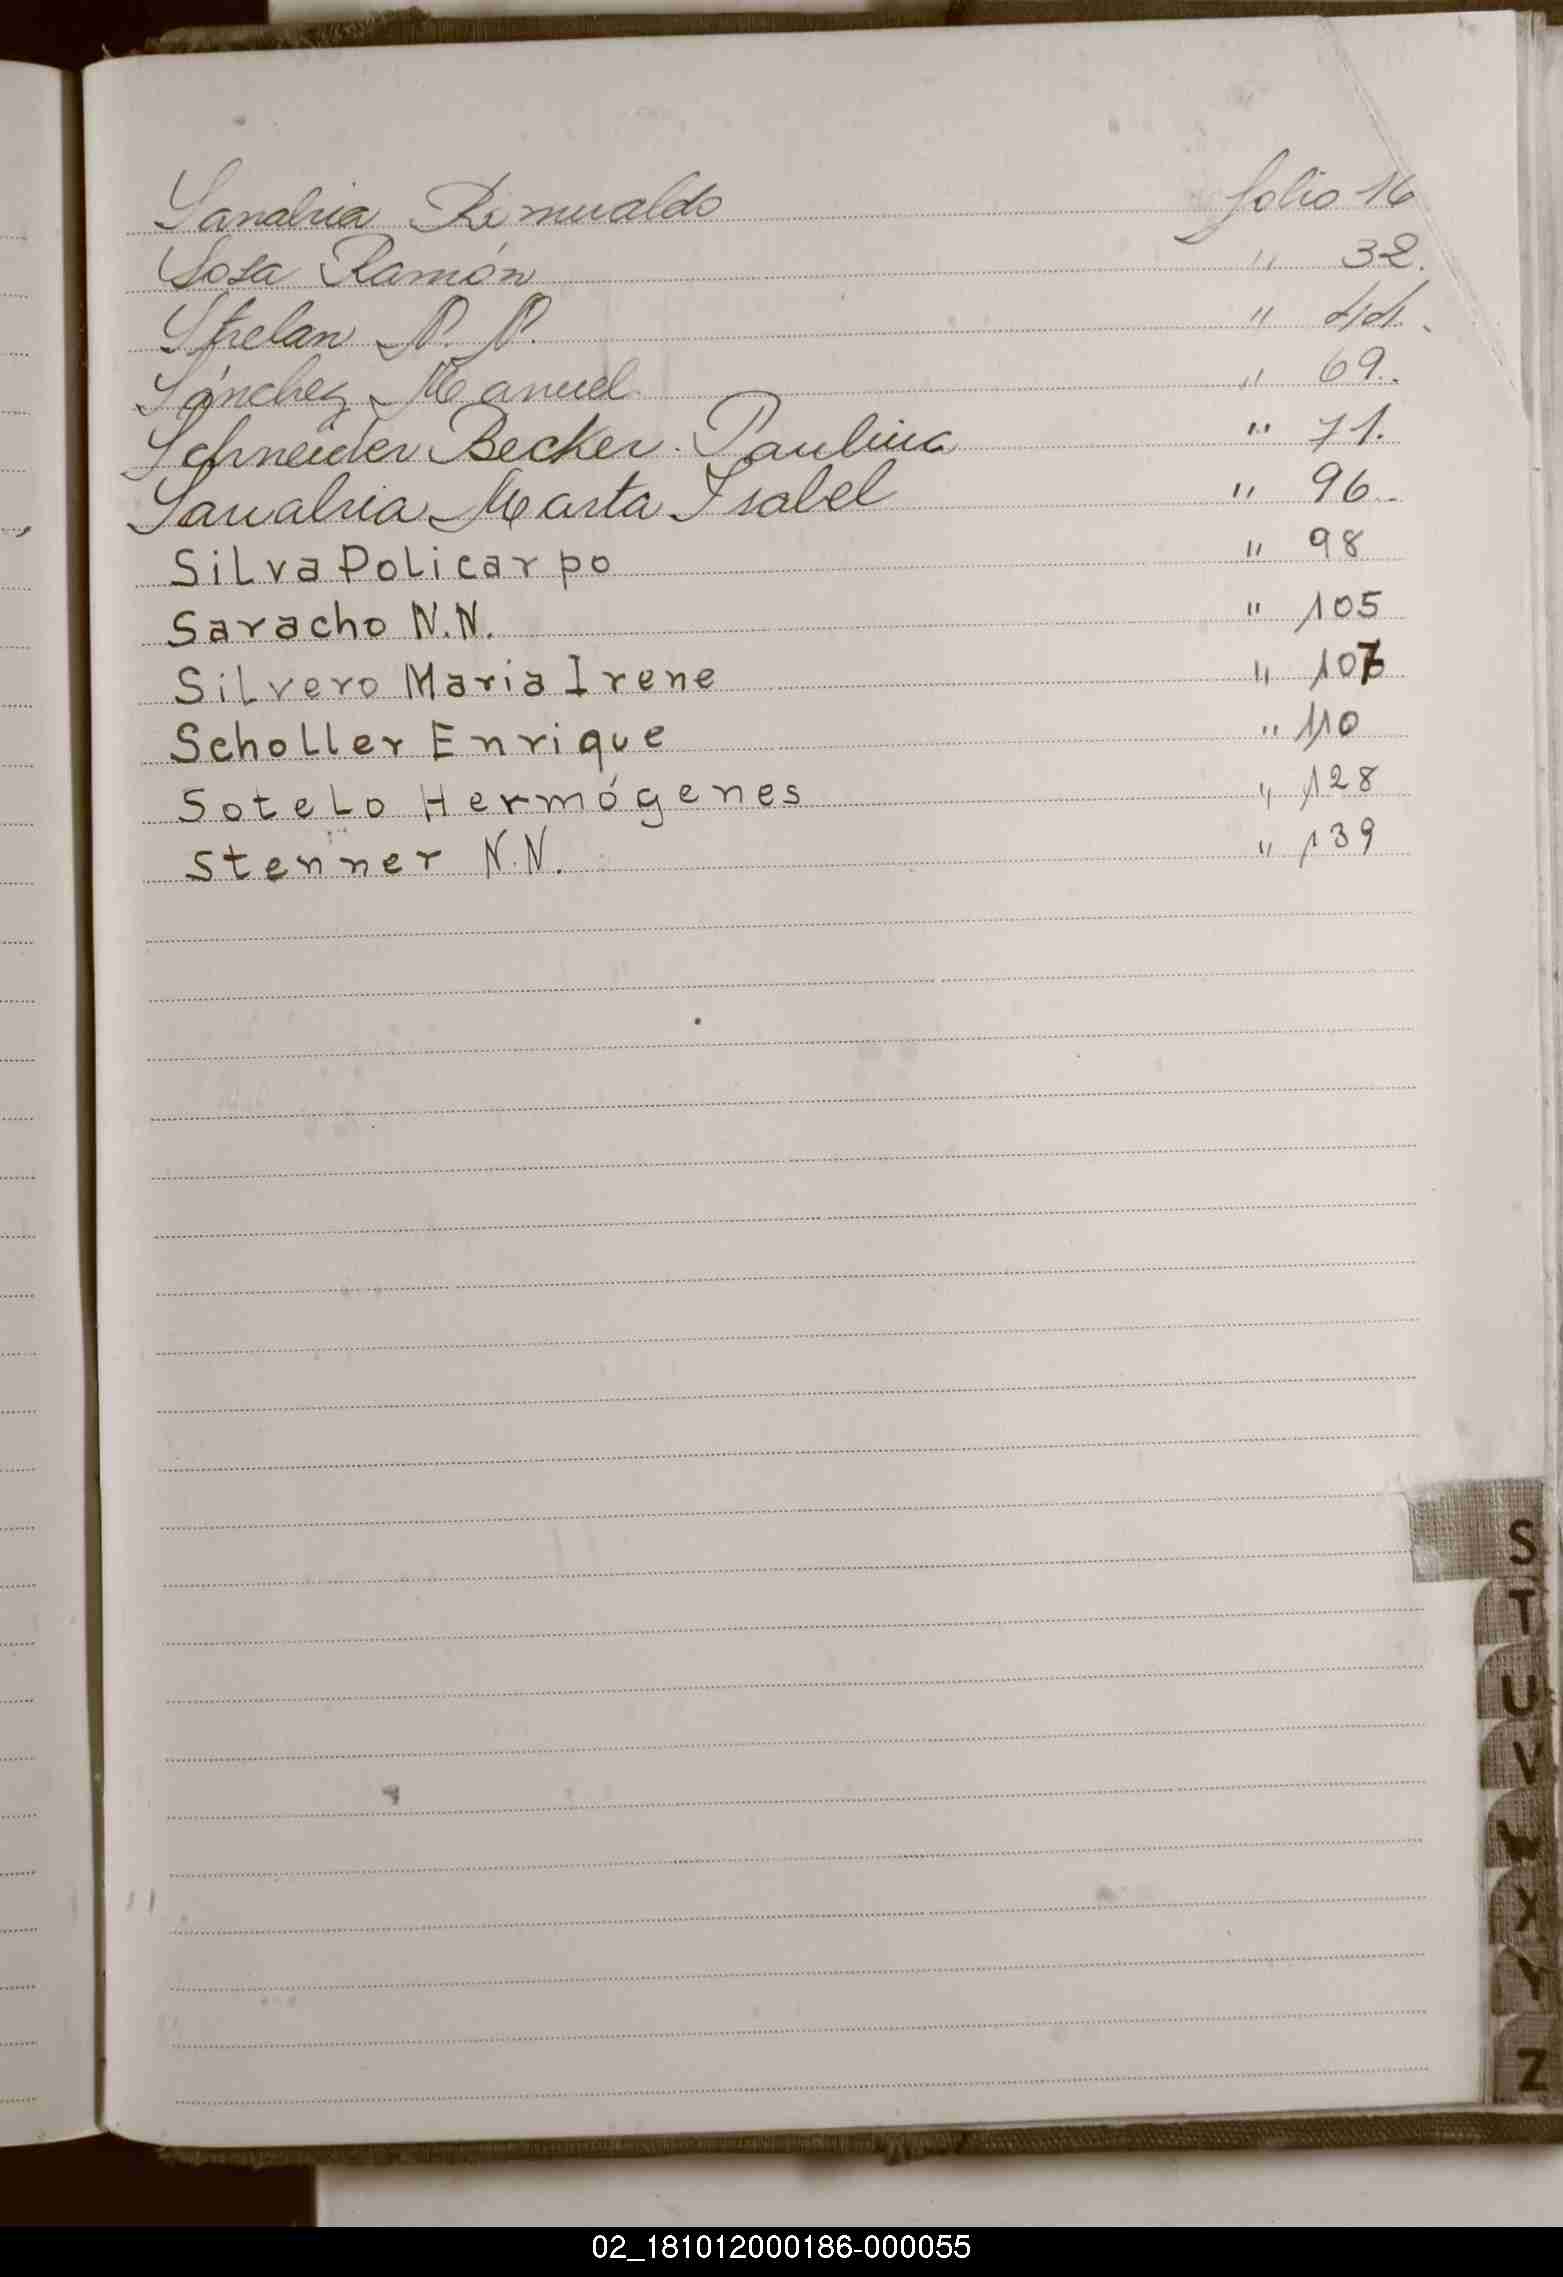 Sanabria Romualdo folio 16
Sosa Ramón " 32.
Strelan N. N. " 44.
Sánchez Manuel " 69.
Schneider Becker Paulina " 71.
Sanabria Marta Isabel " 96
Silva Policarpo " 98
Saracho N.N. " 105
Silvero Maria Irene " 107
Scholler Enrique " 110
Sotelo Hermógenes " 128
Stenner N.N. " 139
S
T
U
V
W
X
Y
Z
02_181012000186-000055